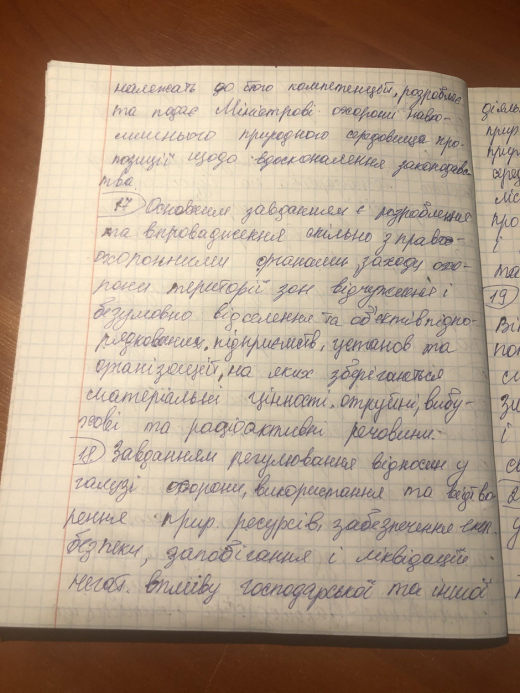 належать до його компетенцій, розробляє
та подає Міністрові охорони навко-
лишнього природного середовища про-
позиції щодо вдосконалення законодавс-
тва
17 Основним завданням є розроблення
та впровадження спільно з право-
охоронними органами заходу охо-
рони території зон відчуження і
безумовно відселення та об'єктів підпо-
рядкованих, підприємств, установ та
організацій, на яких зберігаються
матеріальні цінності, отруйні, вибу-
хові та радіоактивні речовини.
18 Завданням регулювання відносин у
галузі охорони, використання та відтво
рення прир. ресурсів, забезпечення екол.
безпеки, запобігання і ліквідації
негат. впливу господарської та іншої
діяль
прир
прир
сере
міс
про
і
та
19
Ві
пон
с
зи
і
с
2
у